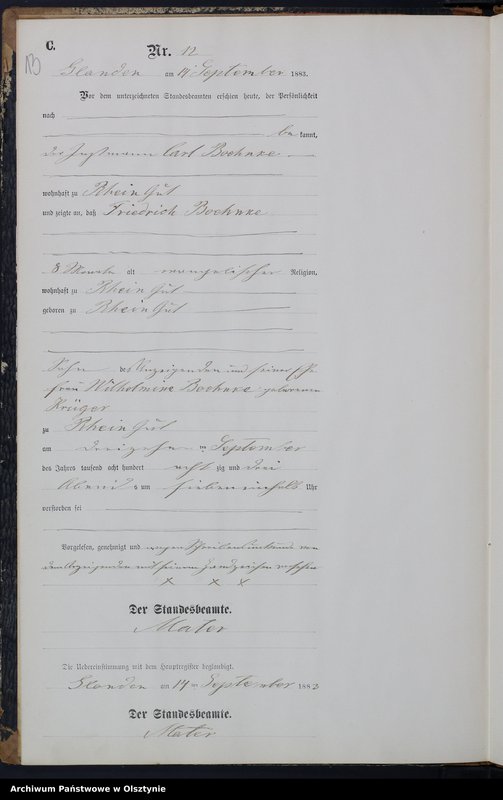 C.
Nr. 12
Glanden am 14 September 1883.
Vor dem unterzeichneten Standesbeamten erschien heute, der Persönlichkeit
nach
be kannt,
der Instmann Carl Boehnke
wohnhaft zu Rhein Gut
und zeigte an, daß Friedrich Boehnke
8 Monate alt evangelischer Religion,
wohnhaft zu Rhein Gut
geboren zu Rhein Gut
Sohn des Anzeigenden und seiner Ehe
frau Wilhelmine Boehnke geborenen
Krüger
zu Rhein Gut
am dreizehn ten September
des Jahres tausend acht hundert acht zig und drei
Abends um sieben einhalb Uhr
verstorben sei
Vorgelesen, genehmigt und wegen Schreibensunkunde von
dem Anzeigenden mit seinem Handzeichen versehen
x x x
Der Standesbeamte.
Mater
Die Uebereinstimmung mit dem Hauptregister beglaubigt.
Glanden am 14 ten September 1883
Der Standesbeamte.
Mater
Archiwum Państwowe w Olsztynie